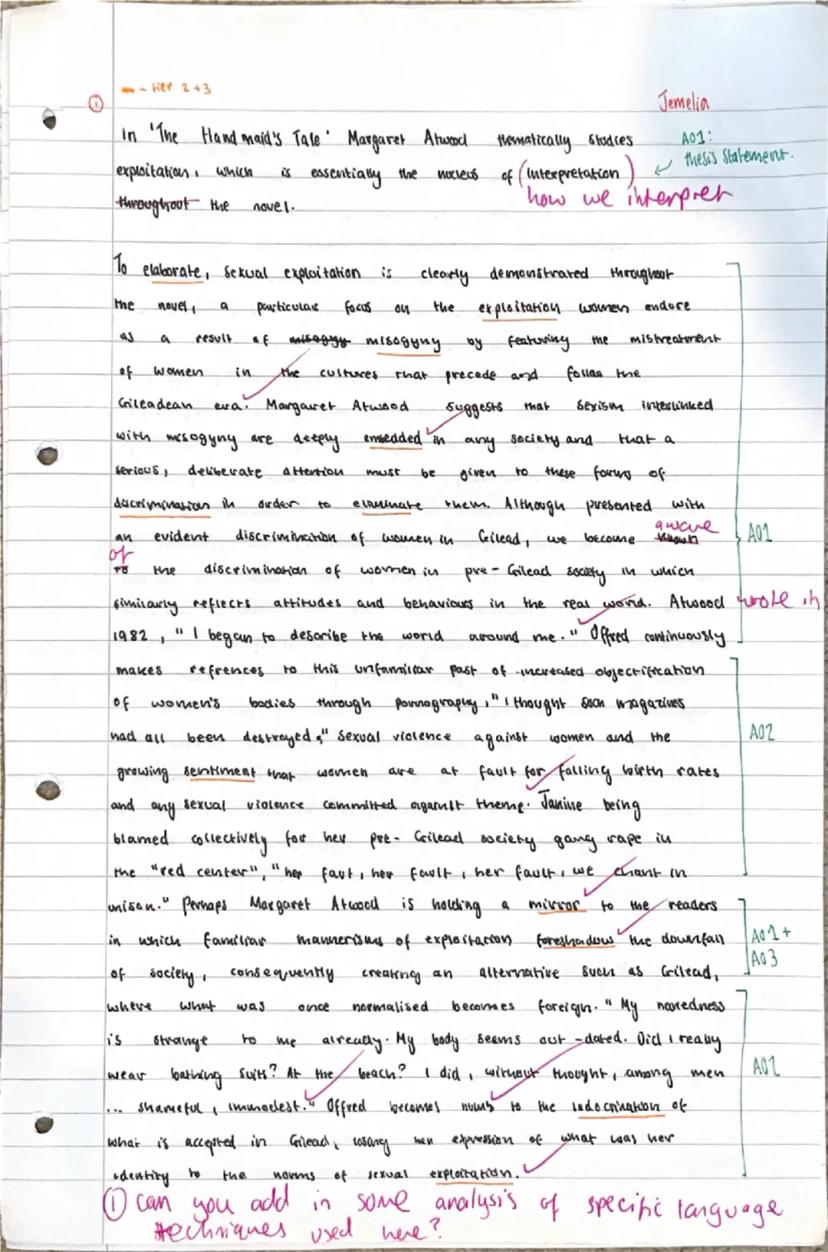 - tier 2+3
① Jemelia
In 'The Handmaid's Tale' Margaret Atwood thematically studies AO1:
exploitation, which is essentially the nucleus of (interpretation) ↙ thesis statement.
throughout the novel. how we interpret
To elaborate, sexual exploitation is clearly demonstrated throughout
the novel, a particular focus on the exploitation women endure
as a result of misogyny misogyny by featuring the mistreatment
of women in the cultures that precede and follow the
Gileadean era. Margaret Atwood suggests that sexism interlinked
with misogyny are deeply embedded in any society and that a
serious, deliberate attention must be given to these forms of
discrimination in order to elaminate them. Although presented with
an evident discrimination of women in Gilead, we become known aware AO1
of
to the discrimination of women in pre-Gilead society in which
similarly reflects attitudes and behaviours in the real world. Atwood wrote in
1982, "I began to describe the world around me." Offred continuously
makes refrences to this unfamiliar past of increased objectification
of women's bodies through pornography, "I thought such magazines
had all been destroyed," sexual violence against women and the AO2
growing sentiment that women are at fault for falling birth rates
and any sexual violence committed against theme. Janine being
blamed collectively for her pre-Gilead society gang rape in
the "red center", "her faut, her fault, her fault, we chant in
unison." Perhaps Margaret Atwood is holding a mirror to the readers
in which familiar mannerisms of exploitation foreshadow the downfall AO1+
of society, consequently creating an alternative such as Gilead, AO3
where what was once normalised becomes foreign. "My nakedness
is strange to me already. My body seems out-dated. Did I really
wear bathing suits? At the beach? I did, without thought, among men
... shameful, immodest." Offred becomes numb to the indocrination of
what is accepted in Gilead, losing her expression of what was her
identity to the norms of sexual exploitation.
① Can you add in some analysis of specific language
techniques used here?